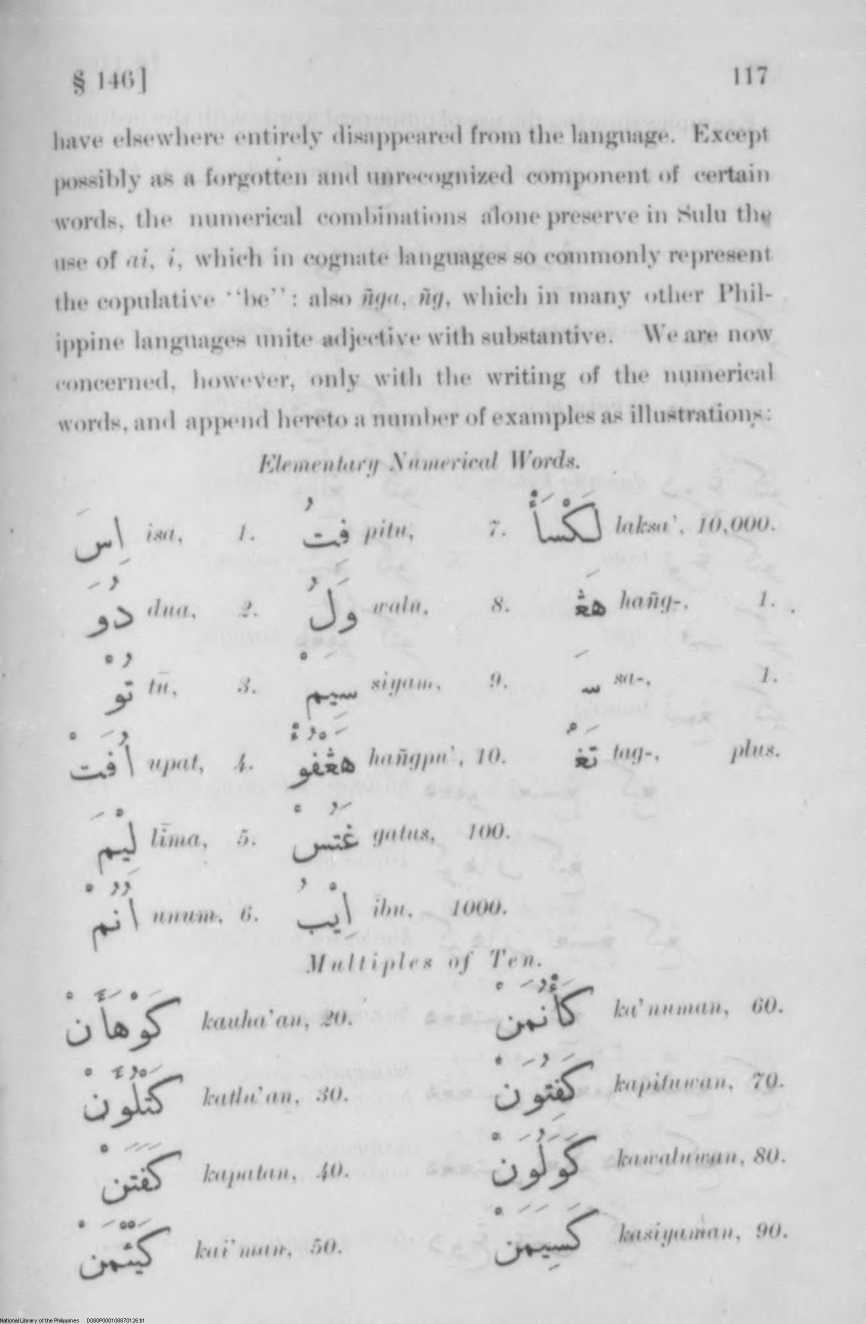 § 146]
117
have elsewhere entirely disappeared from the language. Except
possibly as a forgotten and unrecognized component of certain
words, the numerical combinations alone preserve in Sulu the
use of ai, i, which in cognate languages so commonly represent
the copulative "be": also ñga, ñg, which in many other Phil-
ippine languages unite adjective with substantive. We are now
concerned, however, only with the writing of the numerical
words, and append hereto a number of examples as illustrations:
Elementary Numerical Words.
اِسَ isa, 1. فِتُ pitu, 7. لَكْسَأْ laksa’, 10,000.
دُوَ dua, 2. وَلُ walu, 8. هَڠ hañg-, 1.
تُوْ tū, 3. سِيَمْ siyam, 9. سَ sa-, 1.
اُفَتْ upat, 4. هَڠْفُوْءْ hañgpu’, 10. تَغْ tag-, plus.
لِيْمَ līma, 5. غَتُسْ gatus, 100.
اُنُمْ unum, 6. اِيْبُ ibu, 1000.
Multiples of Ten.
كَوْهَأَنْ kauha’an, 20. كَأْنُمَنْ ka’numan, 60.
كَتْلُوءَنْ katlu’an, 30. كَفِتُوَنْ kapituwan, 70.
كَفَتَنْ kapatan, 40. كَوَلُوَنْ kawaluwan, 80.
kai’man, 50. كَسِيَمَنْ kasiyaman, 90.
National Library of the Philippines